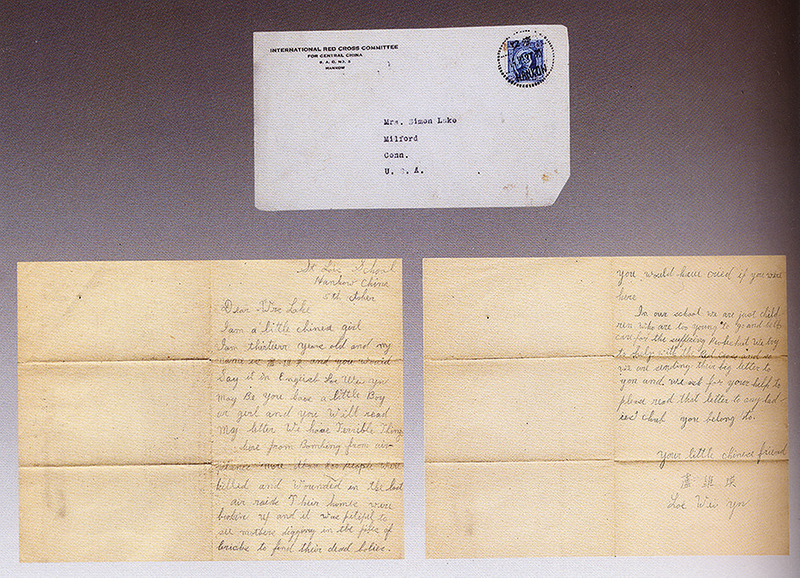 INTERNATIONAL RED CROSS COMMITTEE
FOR CENTRAL CHINA
HANKOW
Mrs. Simon Lake
Milford
Conn.
U. S. A.
School
Hankow China
5th
Dear Mrs Lake
I am a little chinese girl
I am thirteen years old and my
name is and you would
Say it in English Loe Wei Yn
May Be you have a little Boy
or girl and you Will read
My letter We have Terrible Thing
here from Bombing from air-
planes more than people were
killed and Wounded in the last
air raids Their homes were
broken up and it was pitiful to
see mothers digging in the piles of
bricks to find their dead bodies.
you would have cried if you were
here
In our school we are just child-
ren who are too young to go and
care for the suffering but we try
to help with the Red Cross and so
we are sending this big letter to
you and we ask for your help to
please read that letter to any lad-
ies' club you belong to.
Your little chinese friend
盧維瑛
Loe Wei Yn